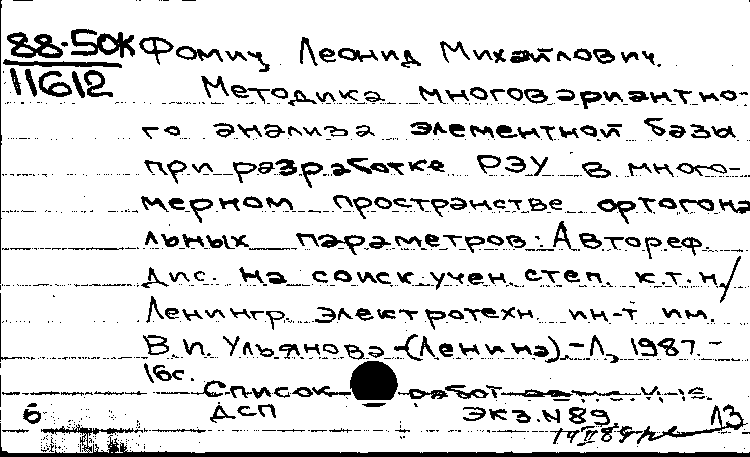 88-50К Фомич, Леонид Михайлович.
11612 Методика многовариантно-
го анализа элементной базы
при разработке РЭУ в много-
мерном пространстве ортогона
льных параметров: Автореф.
дис. на соиск. учен. степ. к.т.н./
Ленингр. электротехн. ин-т им.
В.И. Ульянова-(Ленина).-Л, 1987.-
16с.
Список работ
6 ДСП ЭКЗ.N89. ЛЗ